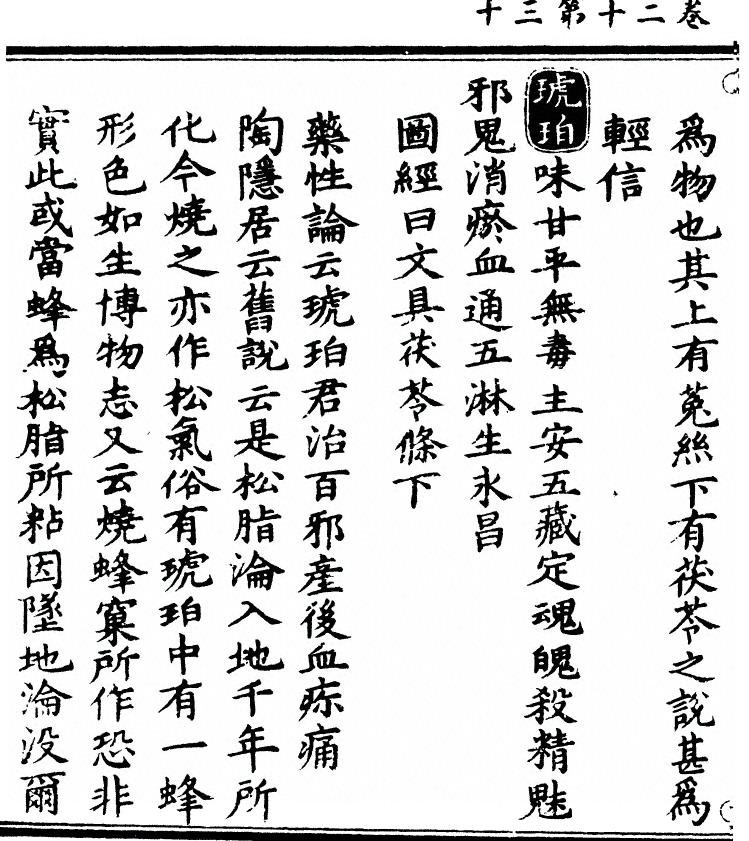 卷二十第三十
爲物也其上有菟絲下有茯苓之說甚爲
輕信
琥珀味甘平無毒主安五藏定魂魄殺精魅
邪鬼消瘀血通五淋生永昌
圖經曰文具茯苓條下
藥性論云琥珀君治百邪產後血疹痛
陶隱居云舊說云是松脂淪入地千年所
化今燒之亦作松氣俗有琥珀中有一蜂
形色如生博物志又云燒蜂窠所作恐非
實此或當蜂爲松脂所粘因墜地淪没爾